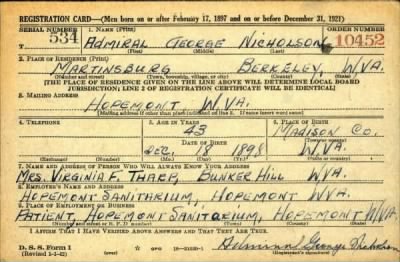 REGISTRATION CARD—(Men born on or after February 17, 1897 and on or before December 31, 1921)
SERIAL NUMBER 1. NAME (Print) ORDER NUMBER
534 ADMIRAL GEORGE NICHOLSON 10452
(First) (Middle) (Last)
2. PLACE OF RESIDENCE (Print)
MARTINSBURG BERKELEY, W.VA.
(Number and street) (Town, township, village, or city) (County) (State)
[THE PLACE OF RESIDENCE GIVEN ON THE LINE ABOVE WILL DETERMINE LOCAL BOARD
JURISDICTION; LINE 2 OF REGISTRATION CERTIFICATE WILL BE IDENTICAL]
3. MAILING ADDRESS
HOPEMONT W.VA.
[Mailing address if other than place indicated on line 2. If same insert word same]
4. TELEPHONE 5. AGE IN YEARS 6. PLACE OF BIRTH
43 MADISON CO.
DATE OF BIRTH (Town or county)
DEC. 18 1898 W.VA.
(Exchange) (Number) (Mo.) (Day) (Yr.) (State or country)
7. NAME AND ADDRESS OF PERSON WHO WILL ALWAYS KNOW YOUR ADDRESS
MRS. VIRGINIA F. THARP, BUNKER HILL W.VA.
8. EMPLOYER'S NAME AND ADDRESS
HOPEMONT SANITARIUM, HOPEMONT W.VA.
9. PLACE OF EMPLOYMENT OR BUSINESS
PATIENT, HOPEMONT SANITARIUM, HOPEMONT W.VA.
(Number and street or R. F. D. number) (Town) (County) (State)
I AFFIRM THAT I HAVE VERIFIED ABOVE ANSWERS AND THAT THEY ARE TRUE.
D. S. S. Form 1 GPO 16—21630-1 Admiral George Nicholson
(Revised 1-1-42) (Registrant's signature)